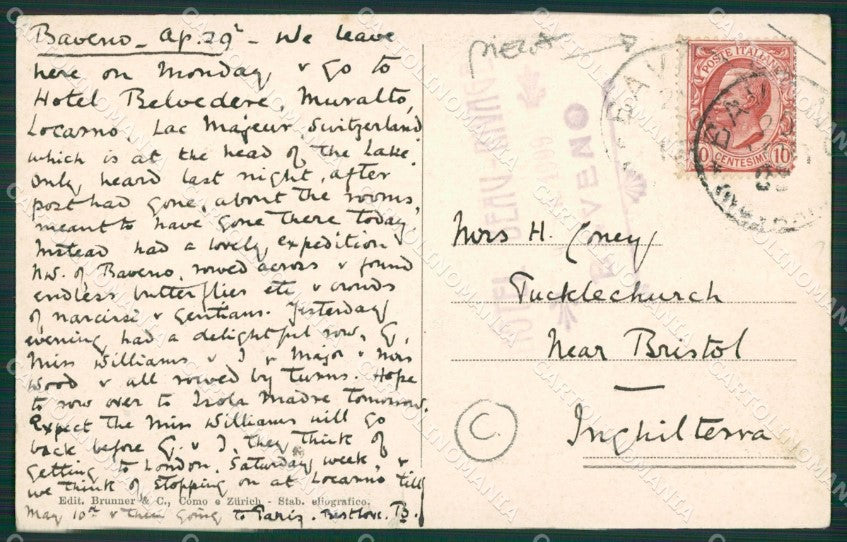 Baveno - Ap. 29th - We leave
here on Monday & go to
Hotel Belvedere, Muralto,
Locarno. Lac Majeur, Switzerland
which is at the head of the Lake.
Only heard last night, after
post had gone, about the rooms,
meant to have gone there today
Instead had a lovely expedition
N.W. of Baveno, rowed across & found
endless butterflies etc & crowds
of narcissi & gentians. Yesterday
evening had a delightful row, G,
Miss Williams & I & Major & Mrs
Wood & all rowed by turns. Hope
to row over to Isola Madre tomorrow.
Expect the Miss Williams will go
back before G. & I, they think of
getting to London, Saturday week, &
we think of stopping on at Locarno till
Edit. Brunner & C., Como e Zürich - Stab. eliografico.
May 10th & then going to Paris. Best love. B.
POSTE ITALIANE
10 CENTESIMI 10
HOTEL BEAU RIVAGE
BAVENO
Mrs H. Coney
Pucklechurch
Near Bristol
Inghilterra
C
CARTOLINOMANIA